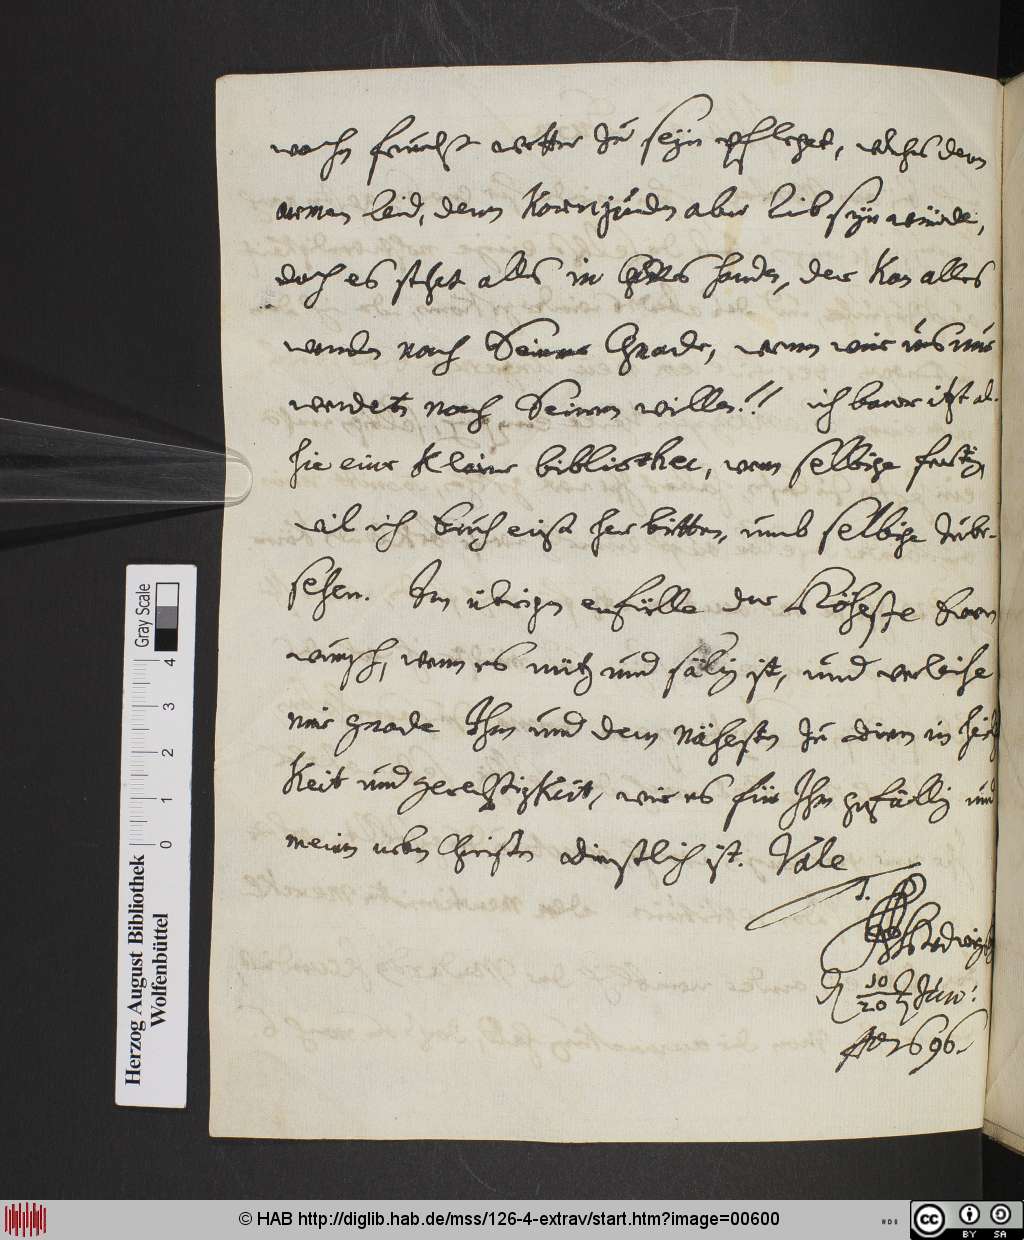 wohn feücht wetter zu seyn pfleget, welches dem
armen leid, denen Kornjüden aber lib seyn würde,
doch es stehet alles in Gottes handen, der kan alles
wenden nach Seiner Gnade, wenn wir uns nur
wenden nach Seinem willen!! ich bauwe itzt al-
hie eine kleine bibliothec, wen selbige fertig,
wil ich Euch einst her bitten, umb selbige zube-
sehen. Im übrigen erfülle der Höheste Euren
wunsch, wenn es nütz und sälig ist, und verleihe
mir gnade Ihm und dem Nähesten zu dinen in heilig
Keit und gerechtigkeit, wie es für Ihm gefällig und
meinem neben Christen dienstlich ist. Vale
Hedwigsb
d 10/20 Jun:
Ao 1696.
Gray Scale
0 1 2 3 4
Herzog August Bibliothek
Wolfenbüttel
© HAB http://diglib.hab.de/mss/126-4-extrav/start.htm?image=00600
cc BY SA